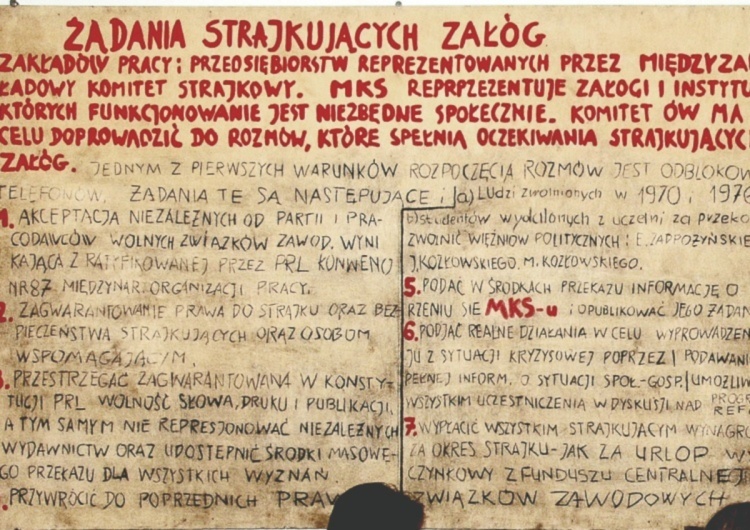 ŻĄDANIA STRAJKUJĄCYCH ZAŁÓG
ZAKŁADÓW PRACY i PRZEDSIĘBIORSTW REPREZENTOWANYCH PRZEZ MIĘDZYZA
ŁADOWY KOMITET STRAJKOWY. MKS REPRPZEZENTUJE ZAŁOGI I INSTYTU
KTÓRYCH FUNKCJONOWANIE JEST NIEZBĘDNE SPOŁECZNIE. KOMITET ÓW MA
CELU DOPROWADZIĆ DO ROZMÓW, KTÓRE SPEŁNIĄ OCZEKIWANIA STRAJKUJĄCYC
ZAŁÓG. JEDNYM Z PIERWSZYCH WARUNKÓW ROZPOCZĘCIA ROZMÓW JEST ODBLOKOW
TELEFONÓW. ŻĄDANIA TE SĄ NASTĘPUJĄCE:
1. AKCEPTACJA NIEZALEŻNYCH OD PARTII I PRA-
CODAWCÓW WOLNYCH ZWIĄZKÓW ZAWOD. WYNI
KAJĄCA Z RATYFIKOWANEJ PRZEZ PRL KONWENCJ
NR 87 MIĘDZYNAR. ORGANIZACJI PRACY.
2. ZAGWARANTOWANIE PRAWA DO STRAJKU ORAZ BEZ
PIECZEŃSTWA STRAJKUJĄCYCH ORAZ OSOBOM
WSPOMAGAJĄCYM.
3. PRZESTRZEGAĆ ZAGWARANTOWANĄ W KONSTY-
TUCJI PRL WOLNOŚĆ SŁOWA, DRUKU I PUBLIKACJI,
A TYM SAMYM NIE REPRESJONOWAĆ NIEZALEŻNYCH
WYDAWNICTW ORAZ UDOSTĘPNIĆ ŚRODKI MASOWE-
GO PRZEKAZU DLA WSZYSTKICH WYZNAŃ
. PRZYWRÓCIĆ DO POPRZEDNICH PRAW
a) LUdzi zwolnionych w 1970 i 1976
b) studentów wydalonych z uczelni za przeko
ZWOLNIĆ WIĘŹNIÓW POLITYCZNYCH: E. ZADROŻYŃSKIE
J. KOZŁOWSKIEGO, M. KOZŁOWSKIEGO.
5. PODAĆ W ŚRODKACH PRZEKAZU INFORMACJĘ O
RZENIU SIĘ MKS-u i OPUBLIKOWAĆ JEGO ŻĄDAN
6. PODJĄĆ REALNE DZIAŁANIA W CELU WYPROWADZEN
JU Z SYTUACJI KRYZYSOWEJ POPRZEZ PODAWANI
PEŁNEJ INFORM. O SYTUACJI SPOŁ-GOSP. UMOŻLIW
WSZYSTKIM UCZESTNICZENIA W DYSKUSJI NAD PROGR
REF
7. WYPŁACIĆ WSZYSTKIM STRAJKUJĄCYM WYNAGRO
ZA OKRES STRAJKU-JAK ZA URLOP WY
CZYNKOWY Z FUNDUSZU CENTRALNEJ
ZWIĄZKÓW ZAWODOWYCH